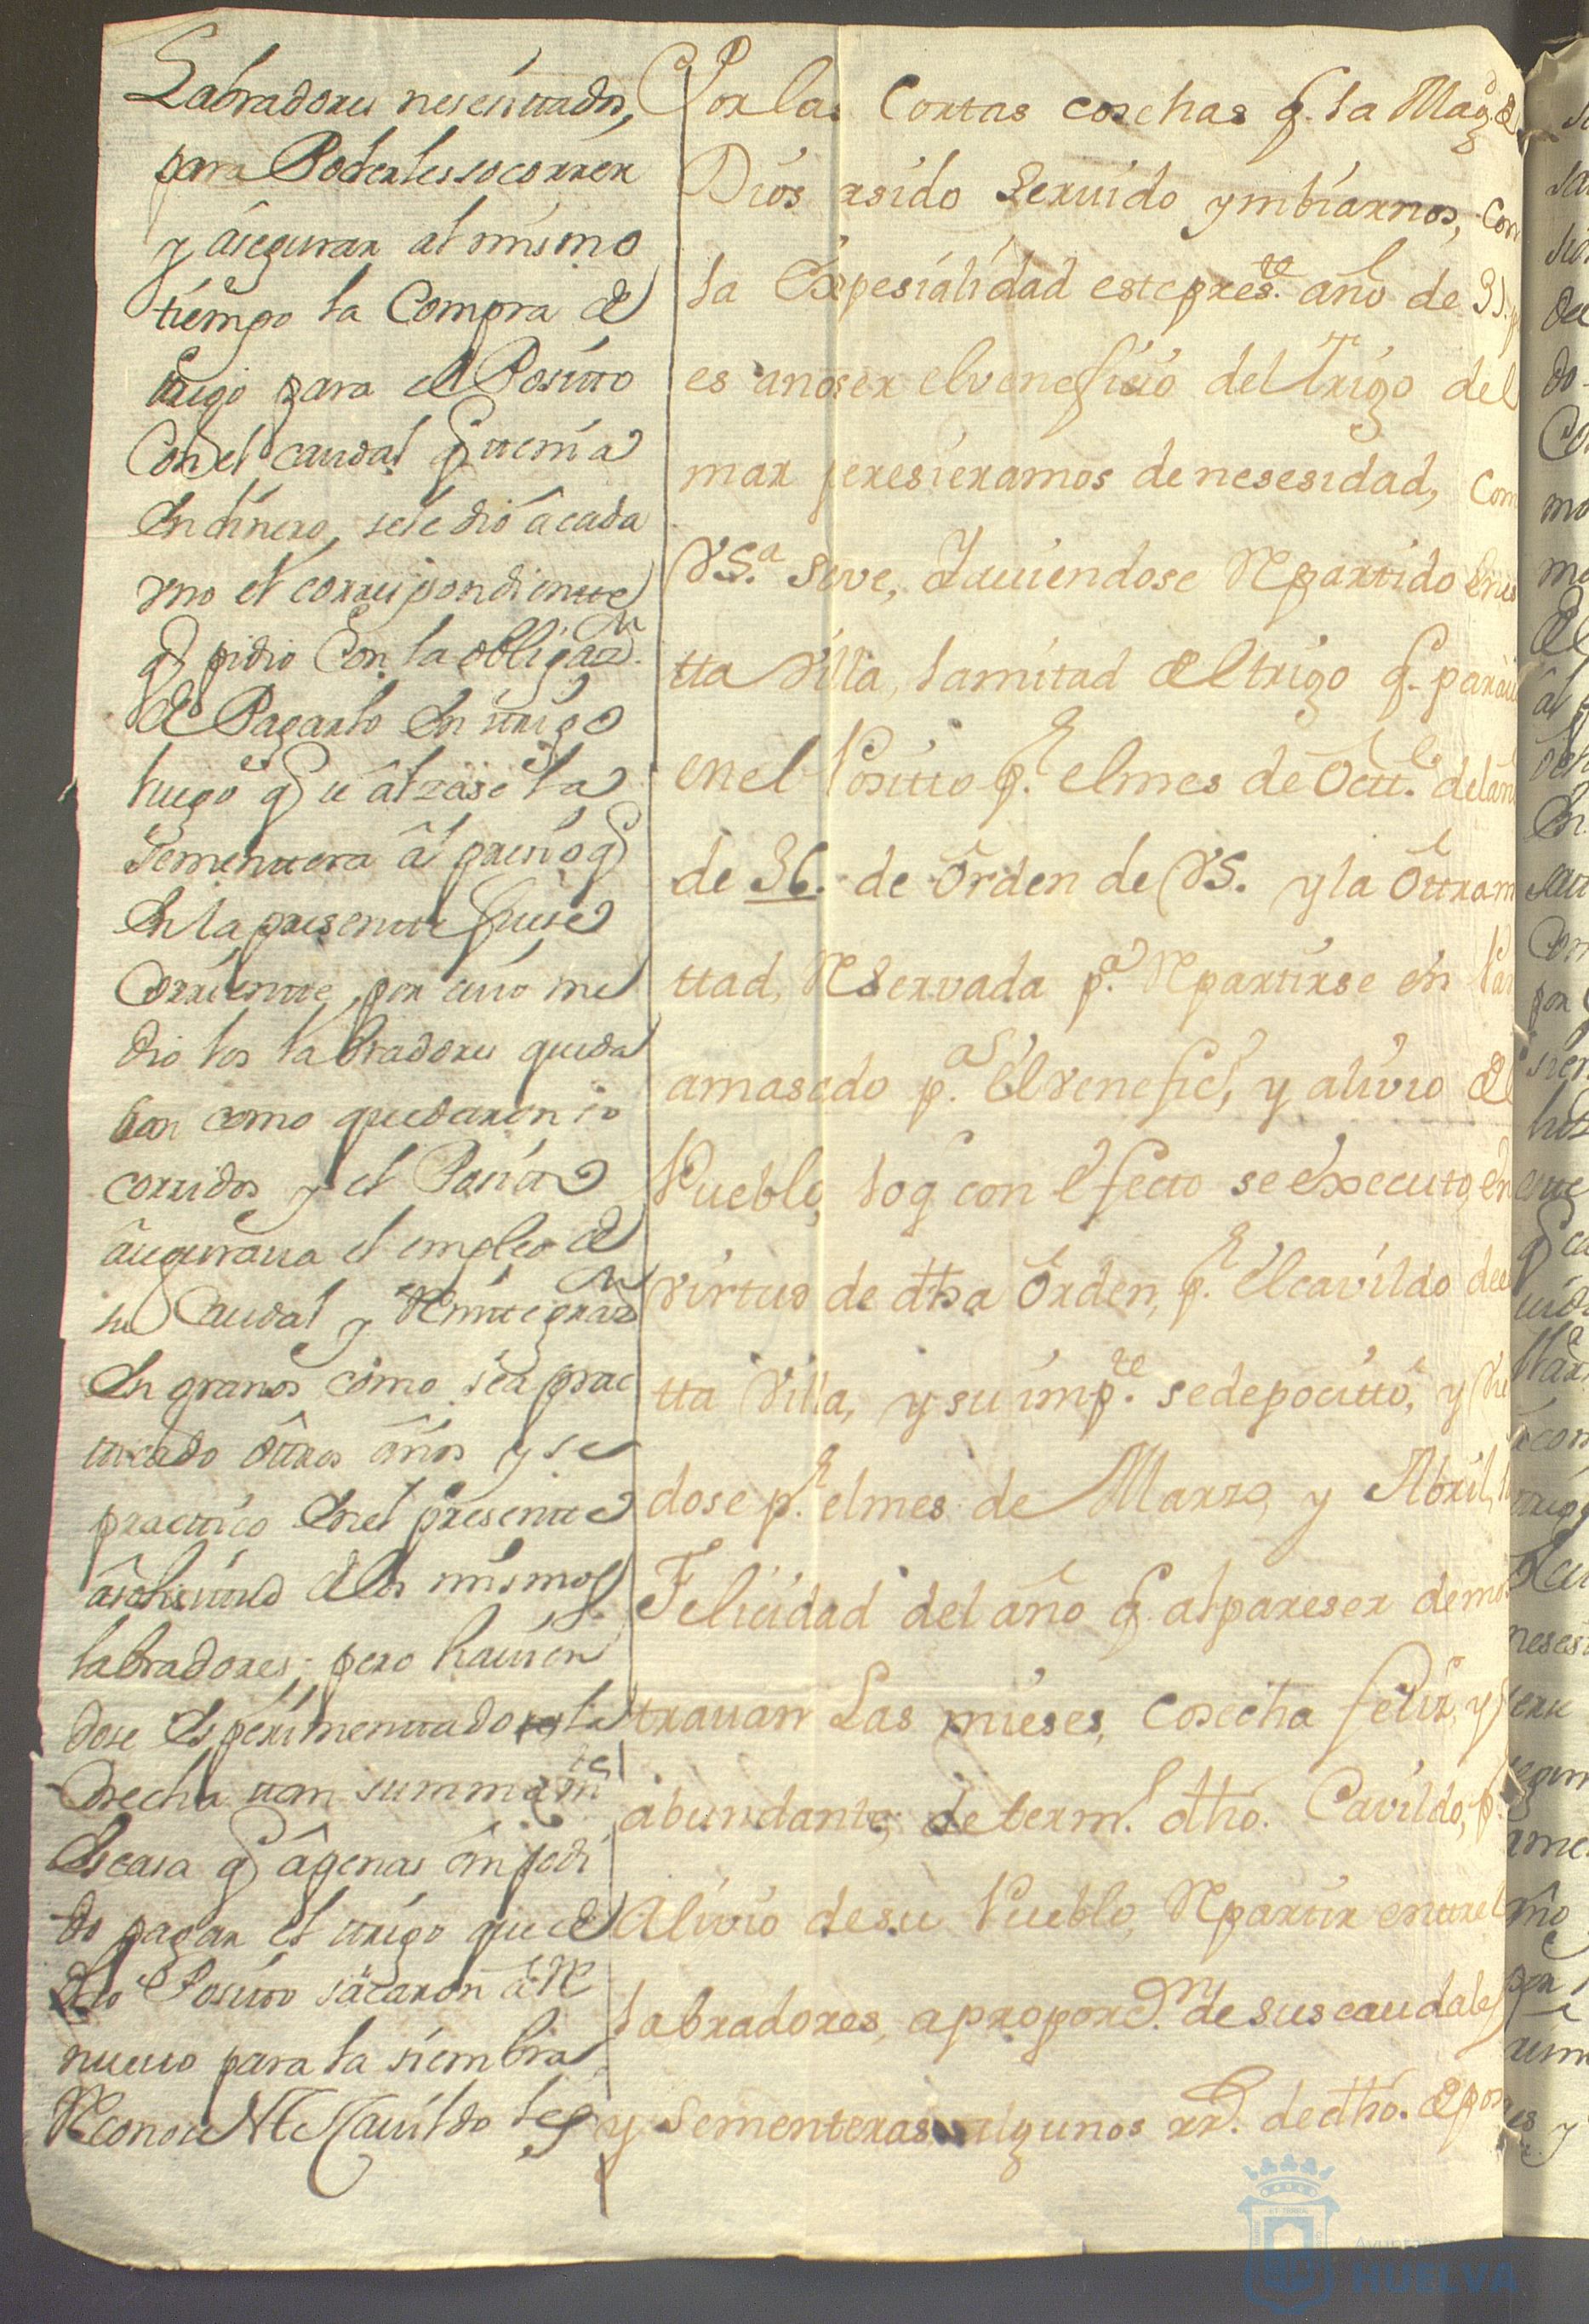 Labradores nesesittados,
para Poderles socorrer
y âsegurar al mismo
tiempo la Compra de
trigo para el Posito
Con el caudal q tenia
En dinero, se le dio â cada
vno el correspondientte
q pidio Con la obligaz.n
de Pagarlo En trigo
luego q se âlzase la
Sementtera âl presio q
En la presentte fuese
Corrientte, por cuio me
dio los labradores queda
ban como quedaron so
corridos y el Posito
âsegurava el empleo de
su Caudal y Reinttegraz.n
En granos como sea prac
ticado ôttros âños y se
practtico En el presentte
â solisitud de los mismos
labradores; pero havien
dose Esperimenttado la
Cosecha tan summam.te
Escasa q âpenas ân podi
do pagar el trigo que de
dho Posito sacaron â Re
nuevo para la siembra
Reconose N.C Cavildo les
Por las Cortas cosehas q. la Mag.d de
Dios asido Seruido ymbiarnos, con
la Expesialidad este pres.te año de 35. p
es ano ser el venefisio del Trigo del
mar peresieramos de nesesidad, com
VS.a Seve, Hauiendose Repartido En es
tta Villa, la mitad del trigo q. parau
en el Posito p.r el mes de Octt.e del añ
de 36. de Orden de VS. y la Ottra m
ttad, Reservada p.a Repartirse en Pan
amasado p.a El Venefiçi, y alivio del
Pueblo, lo q con Efecto se Executo, en
Virtud de dha Orden, p.r El cavildo de es
tta Villa, y su imp.te se depocitto, y Vi
dose p.r el mes de Marzo y Abril, la
Felicidad del año q. al pareser demos
trauan Las mieses, Cosecha feliz, y
abundante, determ. dho. Cavildo, p.
Alivio de su Pueblo, Repartir entre l
labradores, a proporz.n de sus caudales
y Sementeras algunos rr.s de dho. depos
AYUNTAMIENTO
HUELVA